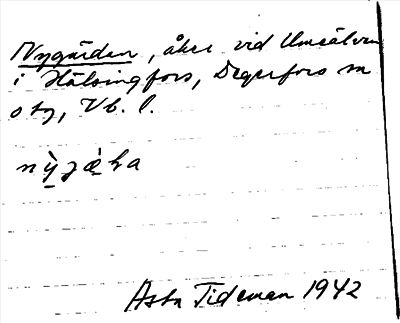 Nygärdan, åker vid Umeälven
i Hälsingfors, Degerfors sn
o tg, Vb. l.
Asta Tideman 1942